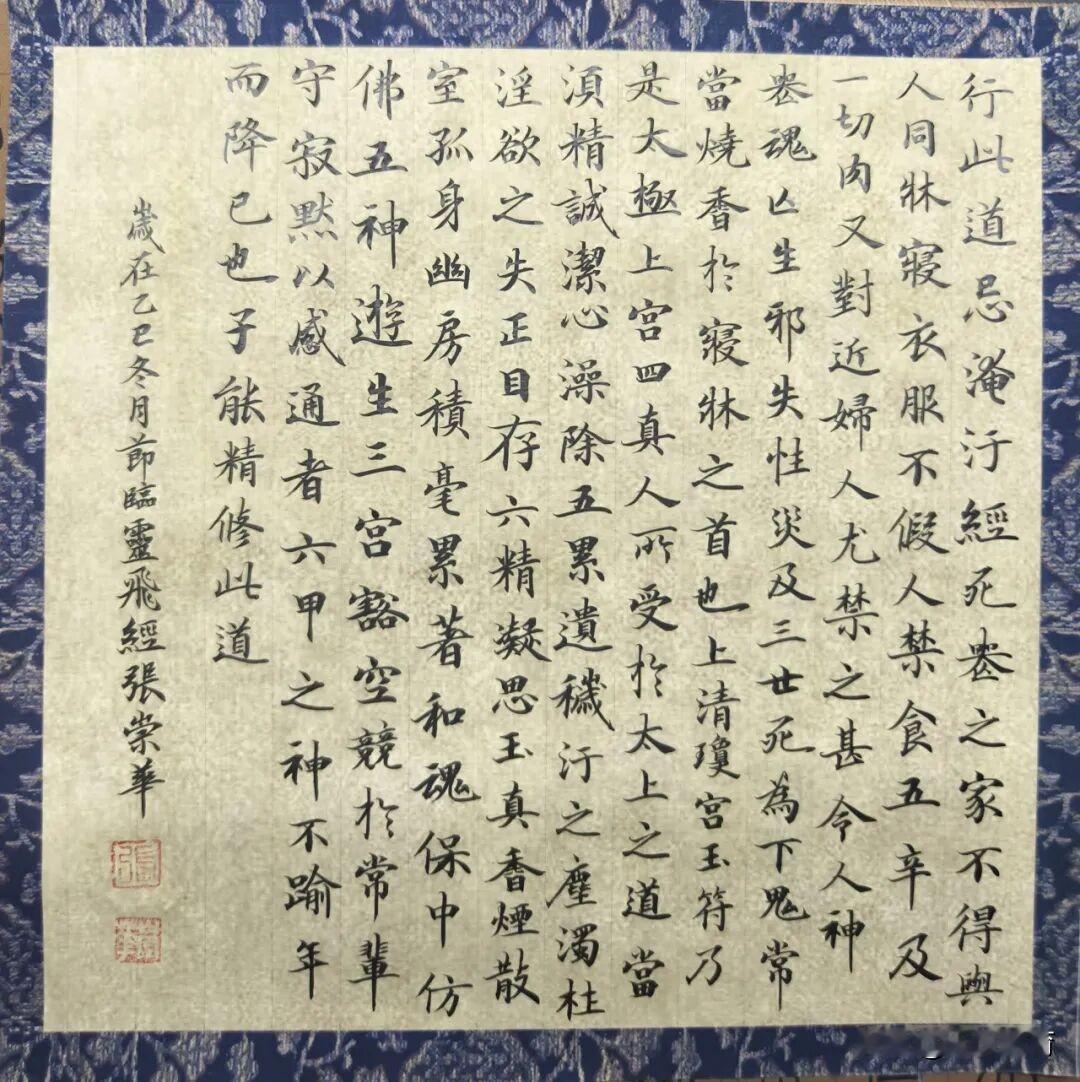 行此道忌淹汙經死丧之家不得與
人同牀寢衣服不假人禁食五辛及
一切肉又對近婦人尤禁之甚令人神
丧魂亾生邪失性災及三世死為下鬼常
當燒香於寢牀之首也上清瓊宮玉符乃
是太極上宮四真人所受於太上之道當
湏精誠潔心澡除五累遺穢汙之塵濁杜
淫欲之失正目存六精凝思玉真香煙散
室孤身幽房積毫累著和魂保中仿
佛五神遊生三宮豁空競於常輩
守寂默以感通者六甲之神不踰年
而降已也子能精修此道
歲在乙巳冬月節臨靈飛經張崇華
張